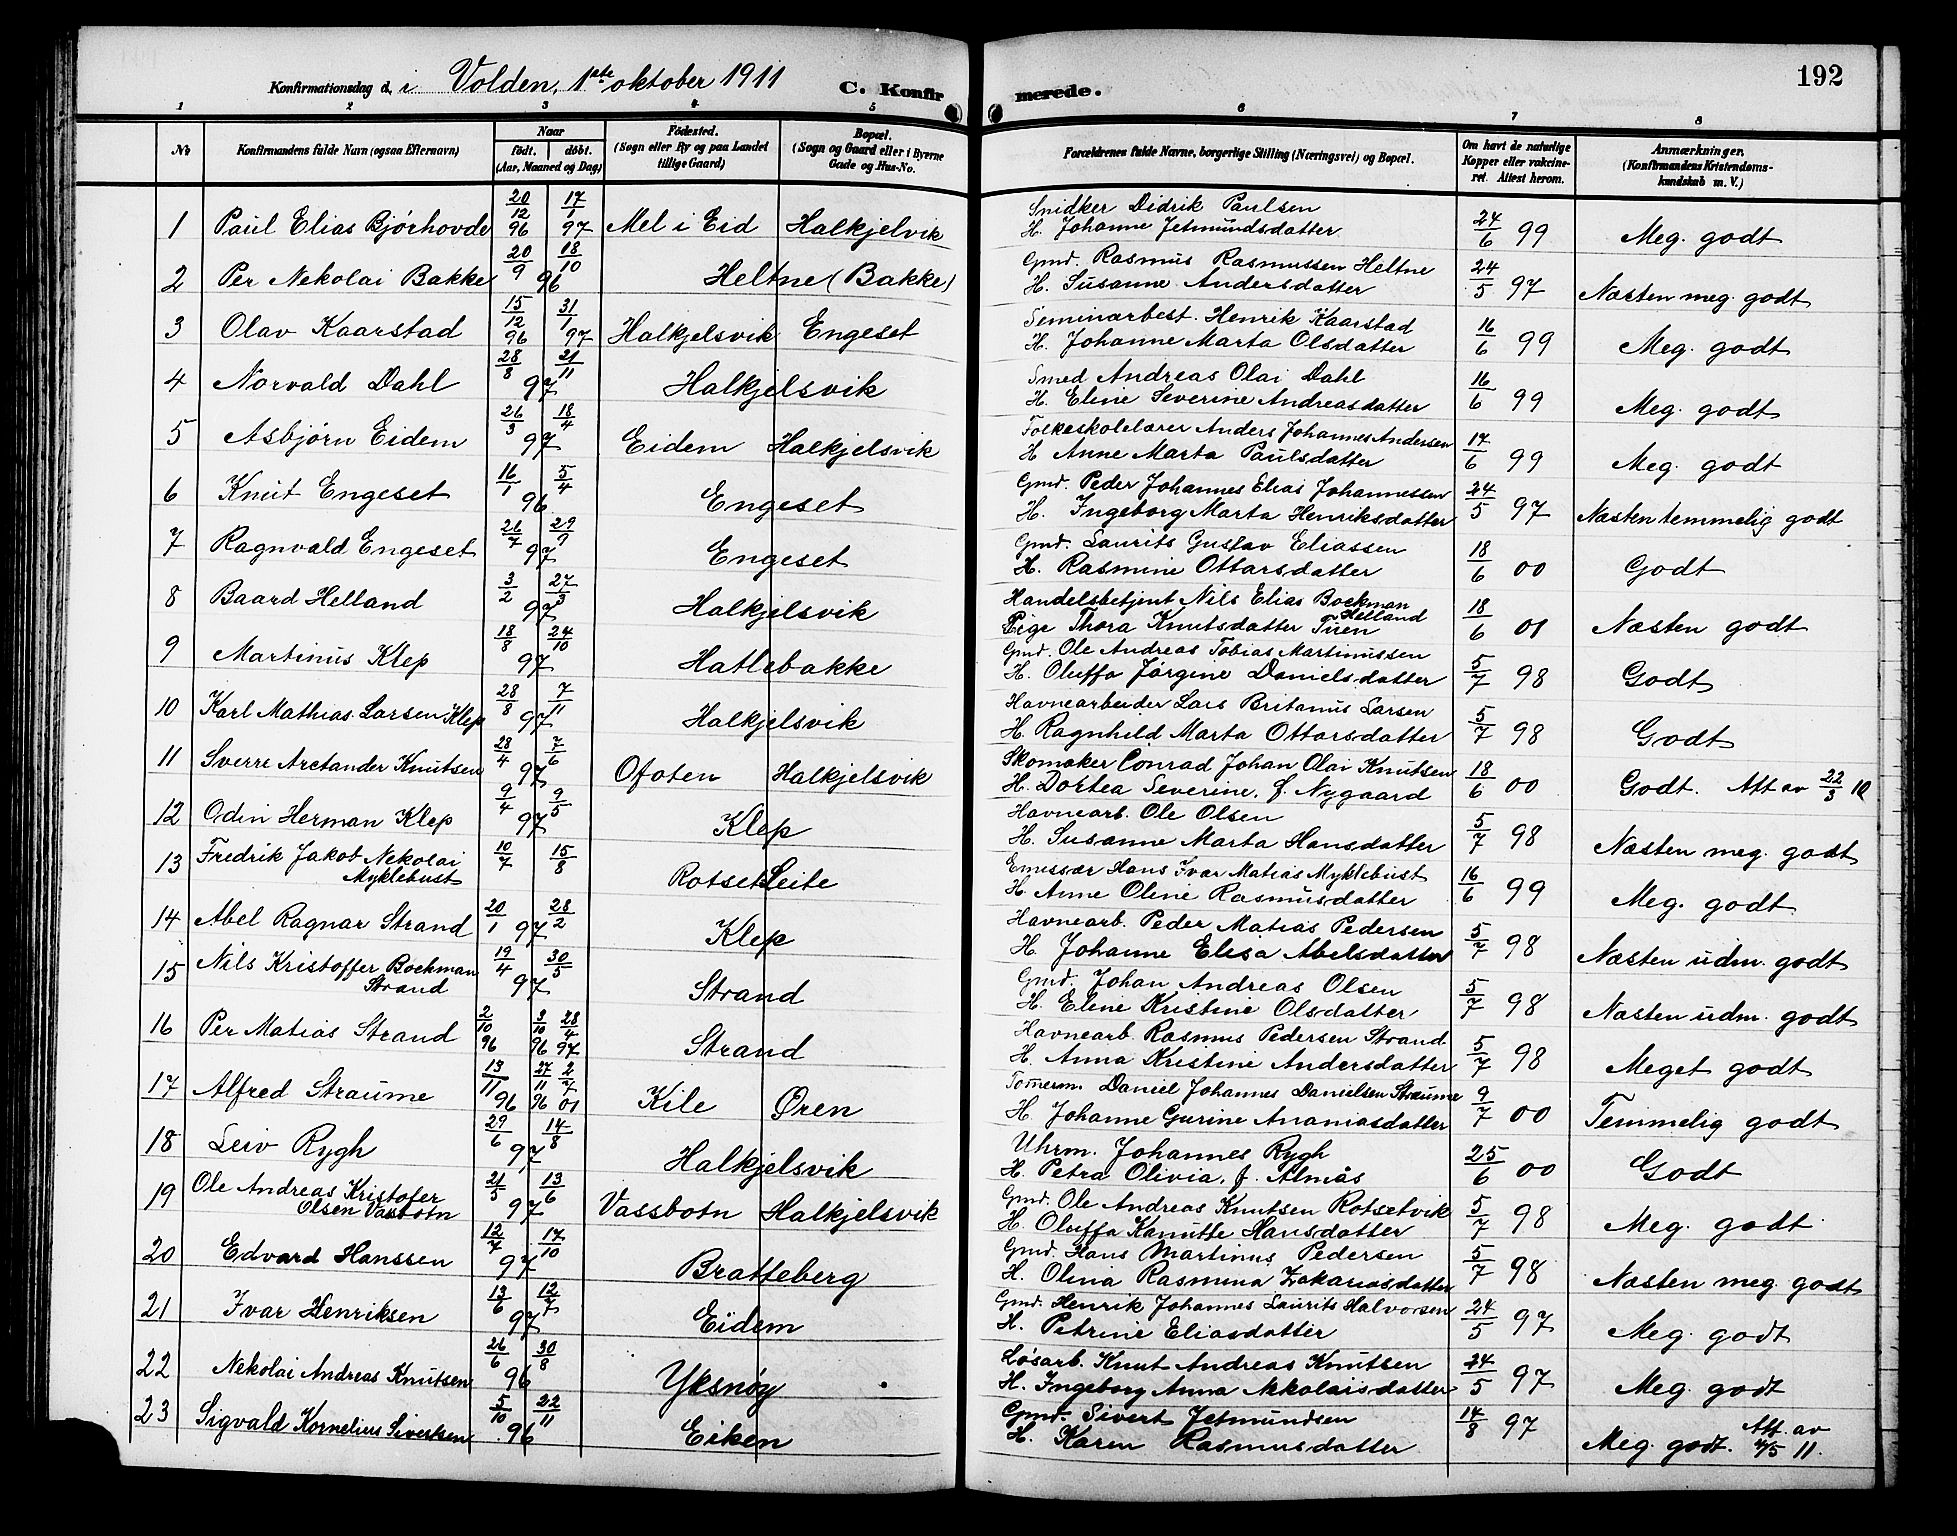 Konfirmationsdag d. i Volden, 1ste oktober 1911 C. Konfirmerede. 192
1 2 3 4 5 6 7 8
No Konfirmandens fulde Navn (ogsaa Efternavn) Naar födt. döbt. (Aar, Maaned og Dag) Födested. (Sogn eller By og paa Landet tillige Gaard) Bopæl. (Sogn og Gaard eller i Byerne Gade og Hus-No. Forældrenes fulde Navne, borgerlige Stilling (Næringsvei) og Bopæl. Om havt de naturlige Kopper eller vakcineret. Attest herom. Anmærkninger. (Konfirmandens Kristendomskundskab m. V.)
1 Paul Elias Bjørhovde 20/12 96 17/1 97 Mel i Eid Halkjelvik Snidker Didrik Paulsen
H. Johanne Jetmundsdatter 24/6 99 Meg. godt
2 Per Nekolai Bakke 20/9 18/10 96 Heltne (Bakke) Gmd. Rasmus Rasmussen Heltne
H. Susanne Andersdatter 24/5 97 Næsten meg. godt
3 Olav Kaarstad 15/12 96 31/1 97 Halkjelsvik Engeset Seminarbest. Henrik Kaarstad
H. Johanne Marta Olsdatter 16/6 99 Meg. godt
4 Norvald Dahl 28/8 21/11 97 Halkjelsvik Smed Andreas Olai Dahl
H. Eline Severine Andreasdatter 16/6 99 Meg. godt
5 Asbjørn Eidem 26/3 18/4 97 Eidem Halkjelsvik Folkeskolelærer Anders Johannes Andersen
H Anne Marta Paulsdatter 17/6 99 Meg. godt
6 Knut Engeset 16/1 5/4 96 Engeset Gmd. Peder Johannes Elias Johannessen
H. Ingeborg Marta Henriksdatter 24/5 97 Næsten temmelig godt
7 Ragnvald Engeset 26/7 29/9 97 Engeset Gmd. Laurits Gustav Eliassen
H. Rasmine Ottarsdatter 18/6 00 Godt
8 Baard Helland 3/2 27/3 97 Halkjelsvik Handelsbetjent Nils Elias Bockman Helland
Pige Thora Knutsdatter Turen 18/6 01 Næsten godt
9 Martinus Klep 18/8 24/10 97 Hatlebakke Gmd. Ole Andreas Tobias Martinussen
H. Oluffa Jørgine Danielsdatter 5/7 98 Godt
10 Karl Mathias Larsen Klep 28/8 7/11 97 Halkjelsvik Havnearbeider Lars Britanus Larsen
H. Ragnhild Marta Ottarsdatter 5/7 98 Godt
11 Sverre Arctander Knutsen 28/4 7/6 97 Ofoten Halkjelsvik Skomaker Conrad Johan Olai Knutsen
H. Dortea Severine, f. Nygaard 18/6 00 Godt. Att av 22/3
12 Odin Herman Klep 9/4 9/5 97 Klep Havnearb. Ole Olsen
H. Susanne Marta Hansdatter 5/7 98 Næsten meg. godt
13 Fredrik Jakob Nekolai Myklebust 10/7 15/8 Rotset Leite Emissær Hans Ivar Matias Myklebust
H. Anne Oline Rasmusdatter 16/6 99 Meg. godt
14 Abel Ragnar Strand 20/1 28/2 97 Klep Havnearb. Peder Matias Pedersen
H. Johanne Elisa Abelsdatter 5/7 98 Næsten udm. godt
15 Nils Kristoffer Bockman Strand 19/4 30/5 97 Strand Gmd. Johan Andreas Olsen
H. Eline Kristine Olsdatter 5/7 98 Næsten udm. godt
16 Per Matias Strand 2/10 96 3/10 96 28/4 97 Strand Havnearb. Rasmus Pedersen Strand
H. Anna Kristine Andersdatter 5/7 98 Meget godt
17 Alfred Straume 13/11 96 27/11 96 2/7 01 Kile Øren Tømerm. Daniel Johannes Danielsen Straume
H. Johanne Gurine Ananiasdatter 9/7 00 Temmelig godt
18 Leiv Rygh 29/6 14/8 97 Halkjelsvik Uhrm. Johannes Rygh
H. Petra Olivia, f. Almås 25/6 00 Godt
19 Ole Andreas Kristofer Olsen Vassbotn 21/5 13/6 97 Vassbotn Halkjelsvik Gmd. Ole Andreas Knutsen Rotsetvik
H. Oluffa Kanutte Hansdatter 5/7 98 Meg. godt
20 Edvard Hanssen 12/7 17/10 97 Bratteberg Gmd. Hans Martinus Pedersen
H. Olina Rasmina Zakariasdatter 5/7 98 Næsten meg. godt
21 Ivar Henriksen 13/6 12/7 97 Eidem Gmd. Henrik Johannes Laurits Halvorsen
H. Petrine Eliasdatter 24/5 97 Meg. godt
22 Nekolai Andreas Knutsen 26/6 30/8 96 Yksnøy Løsarb. Knut Andreas Knutsen
H. Ingeborg Anna Nekolaisdatter 24/5 97 Meg. godt
23 Sigvald Kornelius Sivertsen 5/10 22/11 96 Eiken Gmd. Sivert Jetmundsen
H. Karen Rasmusdatter 14/8 97 Meg. godt. Att. av 4/5 11.